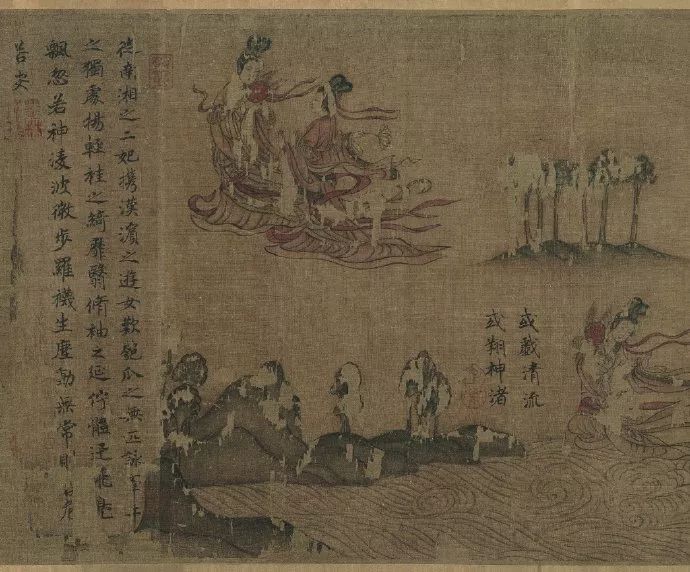 或戲清流
或翔神渚
從南湘之二妃携漢濱之遊女歎匏瓜之無匹詠牽牛
之獨處揚輕袿之綺靡翳脩袖之延佇體迅飛鳧
飄忽若神淩波微步羅襪生塵動無常則若危
若安